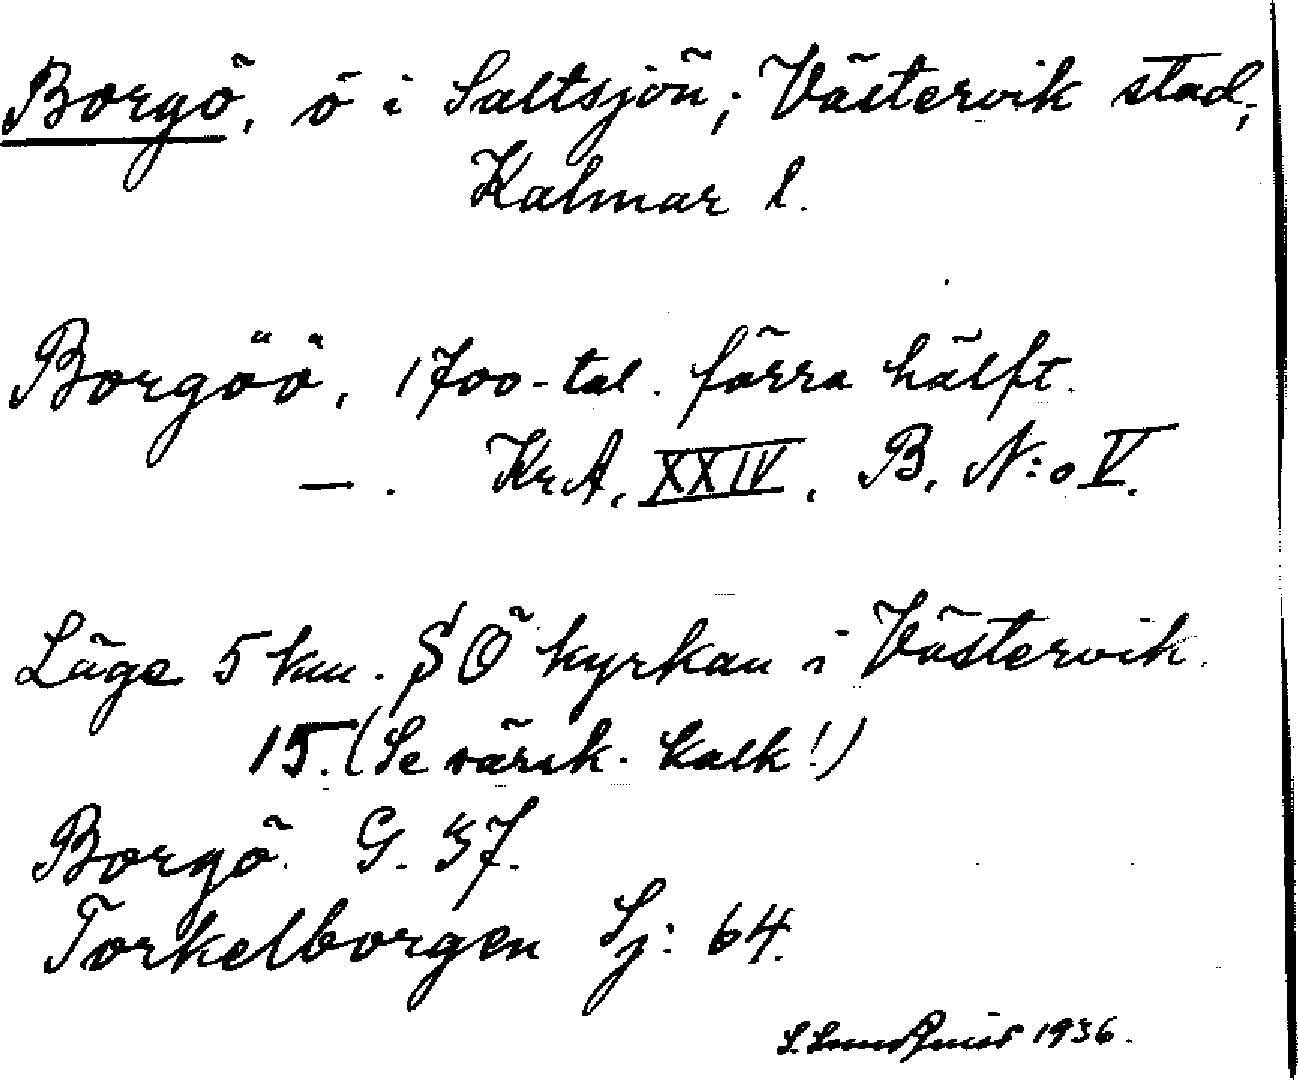 Borgö, ö i Saltsjön; Västervik stad;
Kalmar l.
Borgöö, 1700-tal. förra hälft.
—. Kr.A. XXIV, B. N:o V.
Läge 5 km. SÖ kyrkan i Västervik.
15. (Se särsk. kalk!)
Borgö. G. 57.
Torkelborgen Sj: 64.
S. Lundquist 1936.